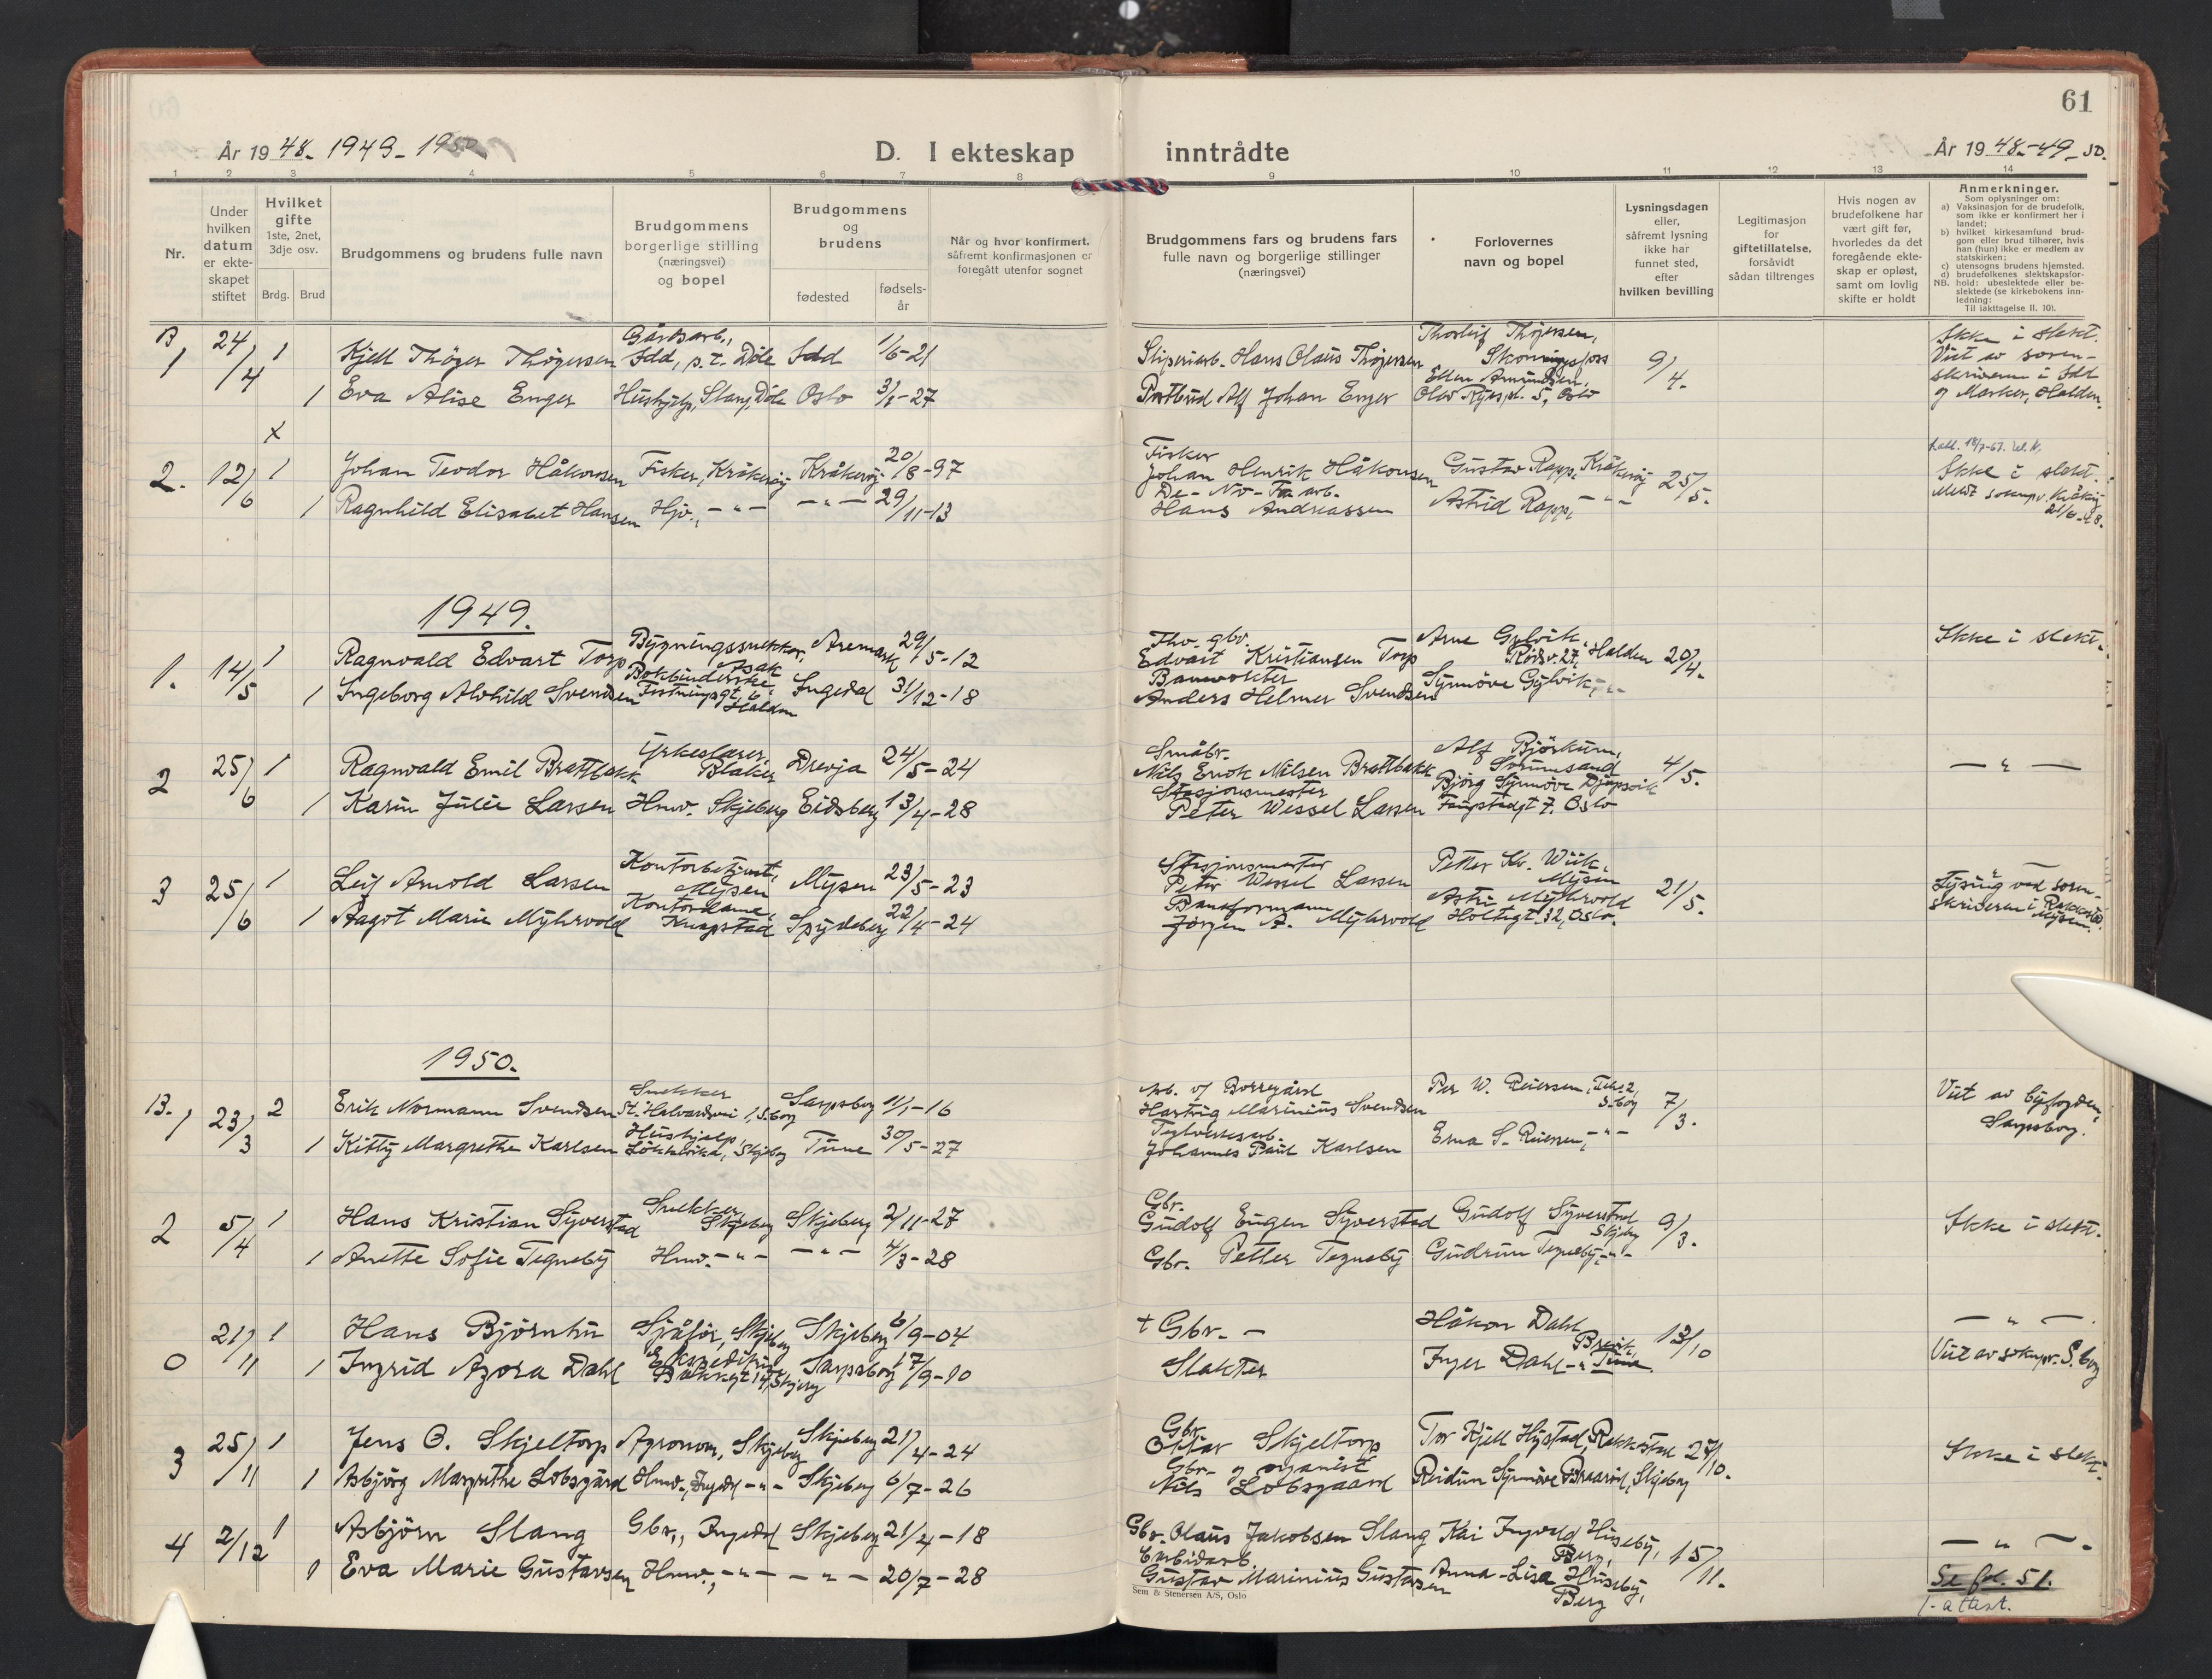 61
År 1948. 1949. 1950.
D. I ekteskap inntrådte
År 1948.-49.-50.
1 2 3 4 5 6 7 8 9 10 11 12 13 14
Nr.
Under hvilken datum er ekteskapet stiftet
Hvilket gifte 1ste, 2net, 3dje osv.
Brdg. Brud
Brudgommens og brudens fulle navn
Brudgommens borgerlige stilling (næringsvei) og bopel
Brudgommens og brudens
fødested
fødselsår
Når og hvor konfirmert, såfremt konfirmasjonen er foregått utenfor sognet
Brudgommens fars og brudens fars fulle navn og borgerlige stillinger (næringsvei)
Forlovernes navn og bopel
Lysningsdagen eller, såfremt lysning ikke har funnet sted, efter hvilken bevilling
Legitimasjon for giftetillatelse, forsåvidt sådan tiltrenges
Hvis nogen av brudefolkene har vært gift før, hvorledes da det foregående ekteskap er opløst, samt om lovlig skifte er holdt
Anmerkninger.
Som oplysninger om:
a) Vaksinasjon for de brudefolk, som ikke er konfirmert her i landet;
b) hvilket kirkesamfund brudgom eller brud tilhører, hvis han (hun) ikke er medlem av statskirken;
c) utensogns brudens hjemsted.
d) brudefolkenes slektskapsforhold: ubeslektede eller beslektede (se kirkebokens innledning:
NB.
Til iakttagelse II. 10).
B 1 24/4 1 Kjell Thöger Thögersen Gårdsarb., Idd, p.t. Døle Idd 1/6-21 Sliperiarb. Hans Olaus Thögersen Thorleif Thögersen, Skonningsfoss 9/4. Ikke i slekt. Viet av sorenskriveren i Idd og Marker, Halden.
1 Eva Alise Enger Hushjelp, Stang, Døle Oslo 3/1-27 Postbud Alf Johan Enger Ellen Amundsen, Olav Ryes pl. 5, Oslo
x
2. 12/6 1 Johan Teodor Håkonsen Fisker, Kråkerøy Kråkerøy 20/8-97 Fisker Johan Henrik Håkonsen Gustav Rapp, Kråkerøy 25/5. Ikke i slekt.
1 Ragnhild Elisabet Hansen Hjv., -"- -"- 29/11-13 De-No-Fa arb. Hans Andreassen Astrid Rapp, -"- Meldt soknepr. Kråkerøy 21/6-48.
1949.
1. 14/5 1 Ragnvald Edvart Torp Bygningssnekker, Asak Aremark 29/5-12 Fhv. gbr. Edvart Kristiansen Torp Arne Gylvik, Rødsv. 27, Halden 20/4. Ikke i slekt.
1 Ingeborg Alvhild Svendsen Bokbinderske, Festningsgt. 6, Halden Ingedal 31/12-18 Banevokter Anders Helmer Svendsen Synnöve Gylvik, -"-
2 25/6 1 Ragnvald Emil Brattbakk Yrkeslærer, Blaker Drevja 24/5-24 Småbr. Nils Enok Nilsen Brattbakk Alf Björkum, Sörumsand 4/5. -"-
1 Karin Julie Larsen Hmv. Skjeberg Eidsberg 13/4-28 Stasjonsmester Peter Wessel Larsen Björg Synnöve Djupvik 7. Oslo
3 25/6 1 Leif Arnold Larsen Kontorbetjent, Mysen Mysen 23/5-23 Stasjonsmester Peter Wessel Larsen Petter Kr. Wiik, Mysen 21/5. -"- Lysing ved sorenskriveren i Rakkestad, Mysen.
1 Aagot Marie Myhrvold Kontordame, Knapstad Spydeberg 22/4-24 Baneformann Jörgen A. Myhrvold Astri Myhrvold Holtegt. 32, Oslo.
1950.
B. 1 23/3 2 Erik Normann Svendsen Snekker St. Halvardsvei 1, S.borg Sarpsborg 11/1-16 Arb. v/ Borregård Hartvig Marinius Svendsen Per W. Reiersen, S.borg 7/3. Viet av byfogden, Sarpsborg.
1 Kitty Margrethe Karlsen Hushjelp, Løkkevika, Skjeberg Tune 30/5-27 Teglverksarb. Johannes Paul Karlsen Erna S. Reiersen, -"-
2 5/4 1 Hans Kristian Syverstad Snekker, Skjeberg Skjeberg 2/11-27 Gbr. Gudolf Eugen Syverstad Gudolf Syverstad Skjeberg 9/3. Ikke i slekt.
1 Anette Sofie Tegneby Hmv. -"- -"- 4/3-28 Gbr. Petter Tegneby Gudrun Tegneby, -"-
0 21/11 1 Hans Björntu Sjåför, Skjeberg Skjeberg 6/9-04 + Gbr. - Håkon Dahl 13/10 -"-.
1 Ingrid Azora Dahl Ekspeditrise Bakkegt. 14, Skjeberg Sarpsborg 17/9-10 Slakter Inger Dahl -"- Brevik, Tune Viet av soknepr. S.borg
3 25/11 1 Jens O. Skjeltorp Agronom, Skjeberg Skjeberg 21/4-24 Gbr. Ottar Skjeltorp Tor Kjell Hystad, Rakkestad 27/10. Ikke i slekt.
1 Asbjörg Margrethe Lobsgård Hmv., Ingedal -"- Skjeberg 6/7-26 Gbr. og organist Nils Löbsgaard Reidun Synnöve Braaröd, Skjeberg
4 2/12 1 Asbjörn Slang Gbr., Ingedal Skjeberg 21/4-18 Gbr. Olaus Jakobsen Slang Kai Ingvald Huseby, Berg, 15/11. -"-.
1 Eva Marie Gustavsen Hmv., -"- -"- 20/7-28 Gustav Marinius Gustavsen Anna-Lisa Huseby, Berg Se fol. 51.
1 attest.
Sem & Stenersen A/S, Oslo